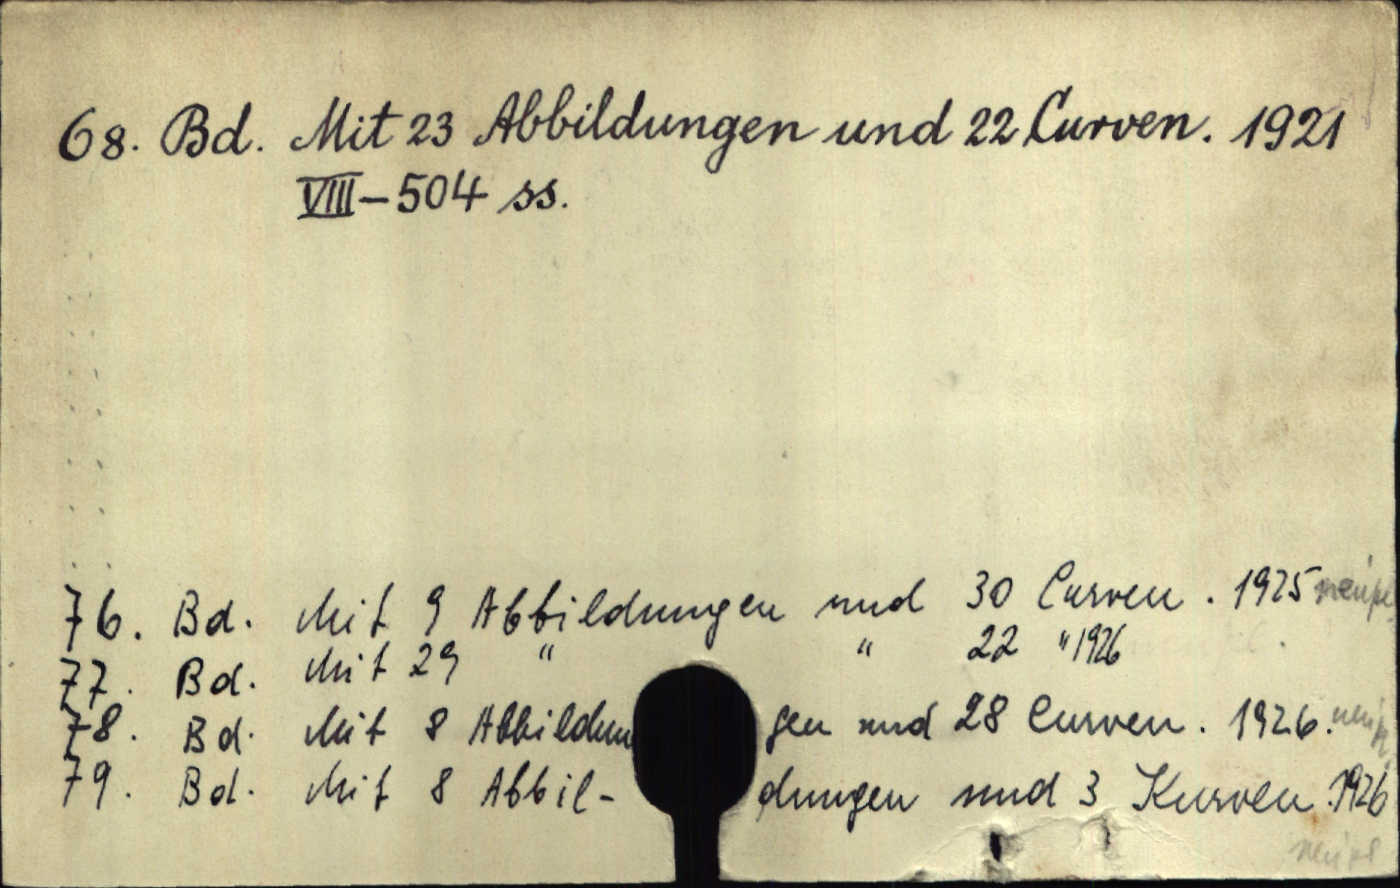 68. Bd. Mit 23 Abbildungen und 22 Curven. 1921
VIII–504 ss.
76. Bd. Mit 9 Abbildungen und 30 Curven. 1925
77. Bd. Mit 29 " " 22 " 1926
78. Bd. Mit 8 Abbildungen und 28 Curven. 1926.
79. Bd. Mit 8 Abbil-dungen und 3 Kurven. 1926